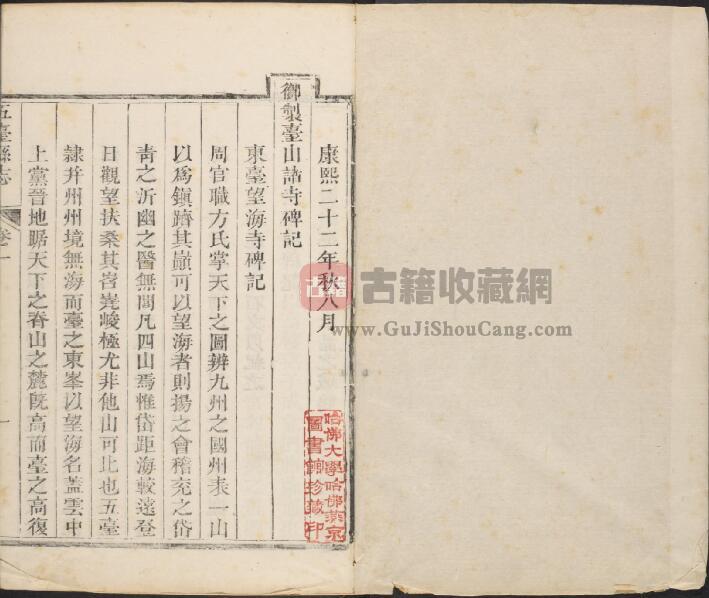 康熙二十二年秋八月
御製臺山諸寺碑記
東臺望海寺碑記
周官職方氏掌天下之圖辨九州之國州表一山
以爲鎭躋其巔可以望海者則揚之會稽兗之岱
青之沂幽之醫無閭凡四山焉惟岱距海較遠登
日觀望扶桑其峇嶤峻極尤非他山可比也五臺
隸并州州境無海而臺之東峯以望海名蓋雲中
上黨晉地踞天下之脊山之麓旣高而臺之高復
五臺縣志
卷一
一
哈佛大學哈佛燕京
圖書館珍藏印
古籍
古籍收藏網
www.GuJiShouCang.com